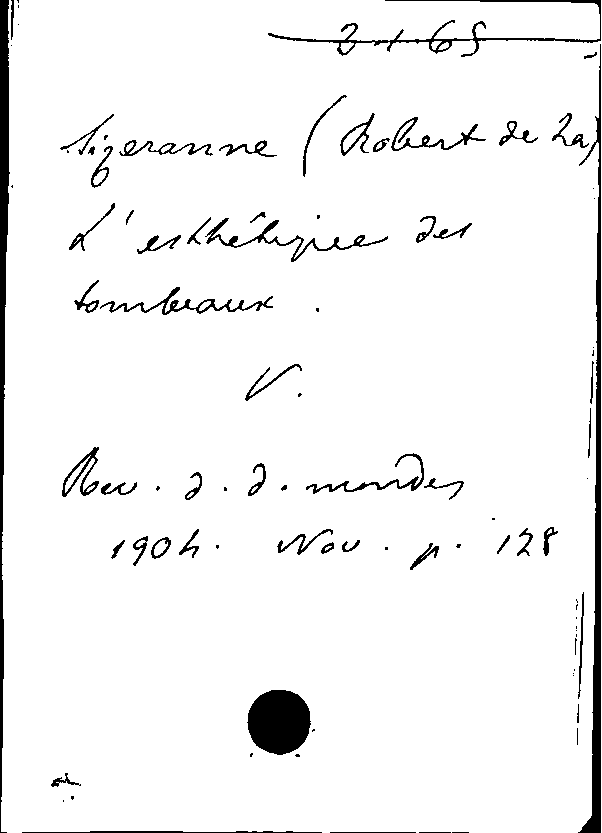 2.1.65
Sizeranne (Robert de La)
L'esthétique des
tombeaux.
V.
Rev. d. d. mondes
1904. Nov. p. 128